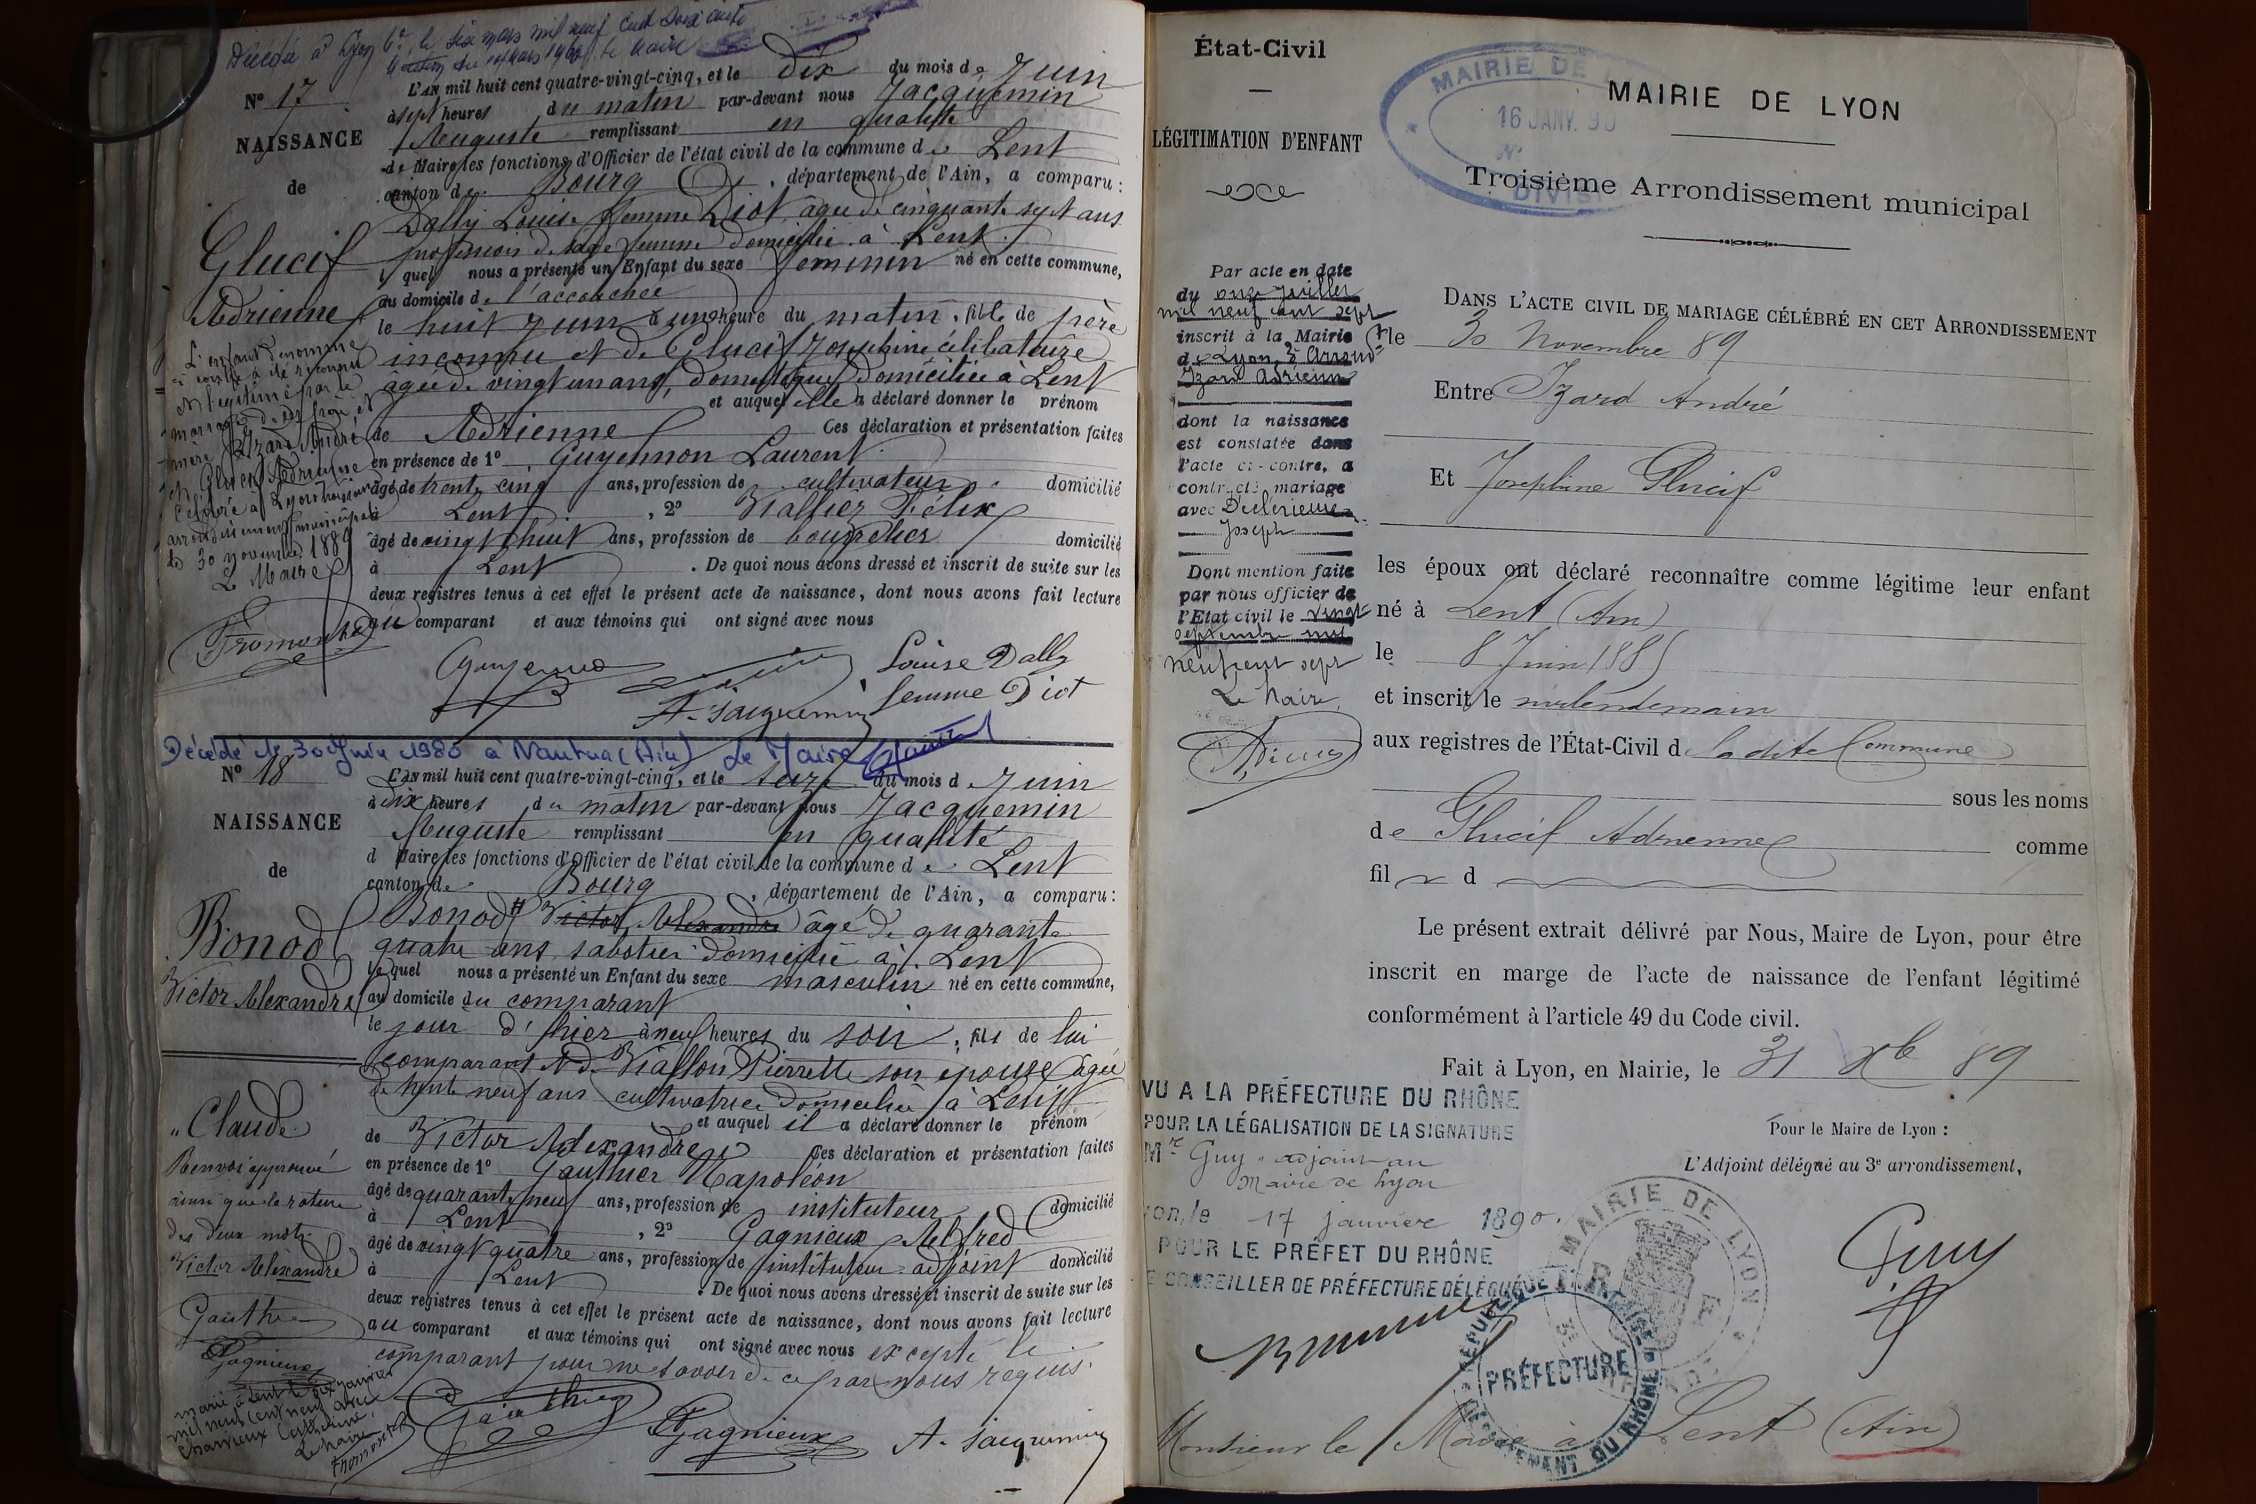 Décédé à Lyon 6e, le six mars mil neuf cent soixante
Le Maire
N° 17
NAISSANCE
de
Glucif
Adrienne
L'enfant dénommé
ci contre a été reconnu
et légitimé par le
mariage de ses père et
mère Izard André
et Glucif Adrienne
célébré à Lyon troisième
arrondissement municipal
le 30 novembre 1889
Le Maire
L'AN mil huit cent quatre-vingt-cinq, et le dix du mois de Juin
à sept heures du matin par-devant nous Jacquemin
Auguste remplissant en qualité
de Maire les fonctions d'Officier de l'état civil de la commune de Lent
canton de Bourg, département de l'Ain, a comparu :
Dally Louise femme Diot, âgée de cinquante sept ans
profession de sage femme domiciliée à Lent
quel nous a présenté un Enfant du sexe féminin né en cette commune,
au domicile de l'accouchée
le huit Juin à une heure du matin, fille de père
inconnu et de Glucif Joséphine célibataire
âgée de vingt un ans, domestique, domiciliée à Lent
et auquel elle a déclaré donner le prénom
de Adrienne Ces déclaration et présentation faites
en présence de 1° Guyennon Laurent
âgé de trente cinq ans, profession de cultivateur domicilié
à Lent, 2° Viallier Félix
âgé de vingt huit ans, profession de bourrelier domicilié
à Lent. De quoi nous avons dressé et inscrit de suite sur les
deux registres tenus à cet effet le présent acte de naissance, dont nous avons fait lecture
au comparant et aux témoins qui ont signé avec nous
Louise Dally
femme Diot
A. Jacquemin
Décédé le 30 Juin 1980 à Nantua (Ain) Le Maire
N° 18
NAISSANCE
de
Bonod
Victor Alexandre
L'AN mil huit cent quatre-vingt-cinq, et le seize du mois de Juin
à dix heures du matin par-devant nous Jacquemin
Auguste remplissant en qualité
d Maire les fonctions d'Officier de l'état civil de la commune de Lent
canton de Bourg, département de l'Ain, a comparu :
Bonod Victor Alexandre âgé de quarante
quatre ans, sabotier domicilié à Lent
lequel nous a présenté un Enfant du sexe masculin né en cette commune,
au domicile du comparant
le jour d'hier à neuf heures du soir, fils de lui
comparant et de Viallon Pierrette son épouse âgée
de trente neuf ans cultivatrice domiciliée à Lent
et auquel il a déclaré donner le prénom
de Victor Alexandre Ces déclaration et présentation faites
en présence de 1° Gauthier Napoléon
âgé de quarante neuf ans, profession de instituteur domicilié
à Lent, 2° Gagnieux Alfred
âgé de vingt quatre ans, profession de instituteur adjoint domicilié
à Lent. De quoi nous avons dressé et inscrit de suite sur les
deux registres tenus à cet effet le présent acte de naissance, dont nous avons fait lecture
au comparant et aux témoins qui ont signé avec nous excepté le
comparant pour ne savoir de ce par nous requis.
Gauthier
Gagnieux
A. Jacquemin
" Claude
Renvoi approuvé
ainsi que la rature
des deux mots
Victor Alexandre
Gauthier
Gagnieux
marié à Lent le six janvier
mil neuf cent neuf avec
Le Maire
État-Civil
LÉGITIMATION D'ENFANT
Par acte en date
du onze Juillet
mil neuf cent sept
inscrit à la Mairie
de Lyon, 3e Arrond
Izard Adrienne
dont la naissance
est constatée dans
l'acte ci-contre, a
contracté mariage
avec
Joseph
Dont mention faite
par nous officier de
l'Etat civil le vingt
septembre mil
neuf cent sept
Le Maire,
MAIRIE DE
16 JANV. 90
N°
DIVISI
MAIRIE DE LYON
Troisième Arrondissement municipal
DANS L'ACTE CIVIL DE MARIAGE CÉLÉBRÉ EN CET ARRONDISSEMENT
le 30 Novembre 89
Entre Izard André
Et Joséphine Glucif
les époux ont déclaré reconnaître comme légitime leur enfant
né à Lent (Ain)
le 8 Juin 1885
et inscrit le surlendemain
aux registres de l'État-Civil de ladite Commune
sous les noms
de Glucif Adrienne comme
fil d
Le présent extrait délivré par Nous, Maire de Lyon, pour être
inscrit en marge de l'acte de naissance de l'enfant légitimé
conformément à l'article 49 du Code civil.
Fait à Lyon, en Mairie, le 31 Xb 89
Pour le Maire de Lyon :
L'Adjoint délégué au 3e arrondissement,
Guy
VU A LA PRÉFECTURE DU RHÔNE
POUR LA LÉGALISATION DE LA SIGNATURE
Mr Guy adjoint au
Maire de Lyon
yon, le 17 janvier 1890.
POUR LE PRÉFET DU RHÔNE
E CONSEILLER DE PRÉFECTURE DÉLÉGUÉ
MAIRIE DE LYON
RÉPUBLIQUE FRANÇAISE
PRÉFECTURE
DÉPARTEMENT DU RHÔNE
Monsieur le Maire à Lent (Ain)